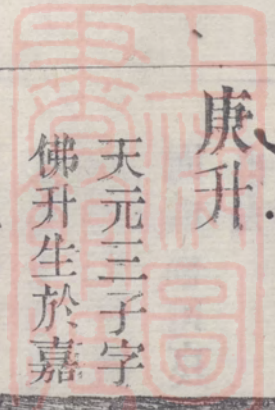 庚升
天元三子字
佛升生於嘉